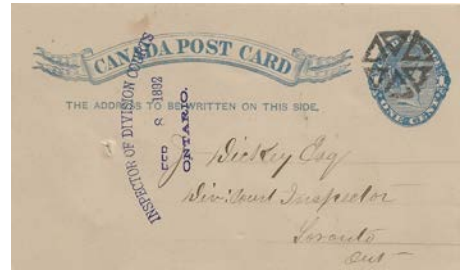 CANADA POST CARD
THE ADDRESS TO BE WRITTEN ON THIS SIDE.
ONE CENT
INSPECTOR OF DIVISION COURTS
FEB 8 1892
ONTARIO.
J. Dickey Esq
Div: Court Inspector
Toronto
Ont